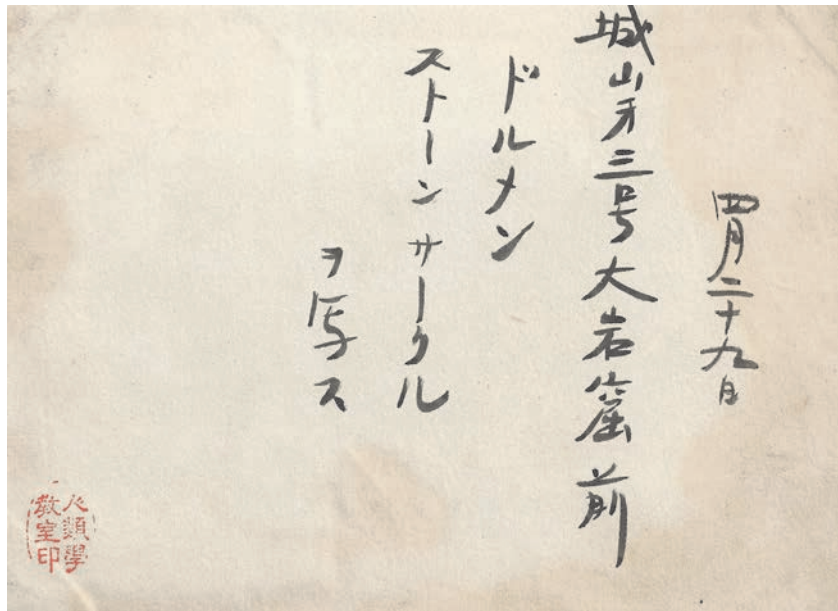 四月二十九日
城山才三号大岩窟前
ドルメン
ストーンサークル
ヲ写ス
人類學
教室印